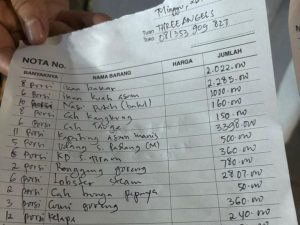 Minggu, 20
Tuan THREE ANGELS
Toko 081353 909 827
NOTA No.
BANYAKNYA NAMA BARANG HARGA JUMLAH
8 porsi Ikan Bakar 2.022.000
6 porsi Ikan kuah asam 2.283.000
10 Nasi putih (bakul) 1000.000
8 porsi Cah kangkung 160.000
6 porsi Cah 150.000
11 porsi Kepiting asam manis 3398.000
5 porsi Udang S. Padang (M) 500.000
6 porsi KP S. Tiram 360.000
2 porsi goreng 780.000
6 porsi Lobster steam 2807.000
2 porsi Cah bunga pepaya 50.000
3 porsi Cumi goreng 360.000
12 porsi Kelapa 240.000